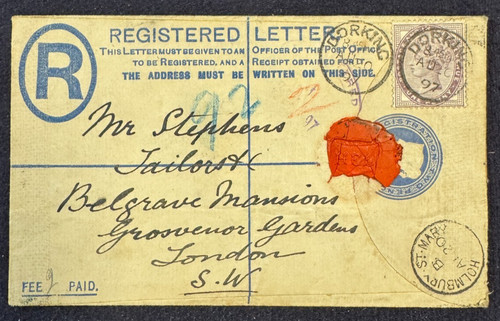 REGISTERED LETTER.
R
THIS LETTER MUST BE GIVEN TO AN OFFICER OF THE POST OFFICE
TO BE REGISTERED, AND A RECEIPT OBTAINED FOR IT
THE ADDRESS MUST BE WRITTEN ON THIS SIDE.
DORKING
DORKING
AU
97
92
Mr Stephens
Tailors &c
Belgrave Mansions
Grosvenor Gardens
London
S.W
REGISTRATION TWO PEN
HOLMBURY-ST-MARY
B
AU 20
FEE PAID.